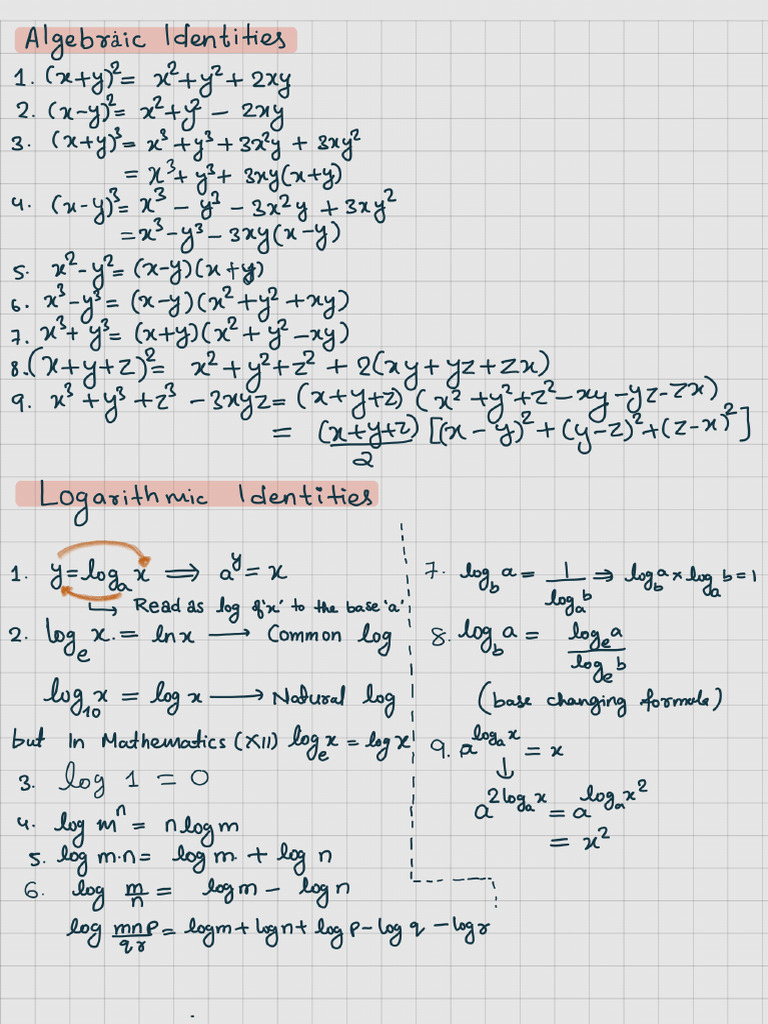 Algebraic Identities
1. (x+y)² = x² + y² + 2xy
2. (x-y)² = x² + y² - 2xy
3. (x+y)³ = x³ + y³ + 3x²y + 3xy²
= x³ + y³ + 3xy(x+y)
4. (x-y)³ = x³ - y³ - 3x²y + 3xy²
= x³ - y³ - 3xy(x-y)
5. x² - y² = (x-y)(x+y)
6. x³ - y³ = (x-y)(x² + y² + xy)
7. x³ + y³ = (x+y)(x² + y² - xy)
8. (x+y+z)² = x² + y² + z² + 2(xy + yz + zx)
9. x³ + y³ + z³ - 3xyz = (x+y+z)(x² + y² + z² - xy - yz - zx)
= (x+y+z)/2 [(x-y)² + (y-z)² + (z-x)²]
Logarithmic Identities
1. y = logₐx ⟹ a^y = x
↳ Read as log of 'x' to the base 'a'
2. logₑ x = ln x ⟶ Common log
log₁₀ x = log x ⟶ Natural log
but In Mathematics (XII) logₑx = log x
3. log 1 = 0
4. log mⁿ = n log m
5. log m·n = log m + log n
6. log m/n = log m - log n
log mnp/qr = log m + log n + log p - log q - log r
7. log_b a = 1/log_a b ⇒ log_b a × log_a b = 1
8. log_b a = logₑa/logₑb
(base changing formula)
9. a^(logₐx) = x
↓
a^(2logₐx) = a^(logₐx²)
= x²